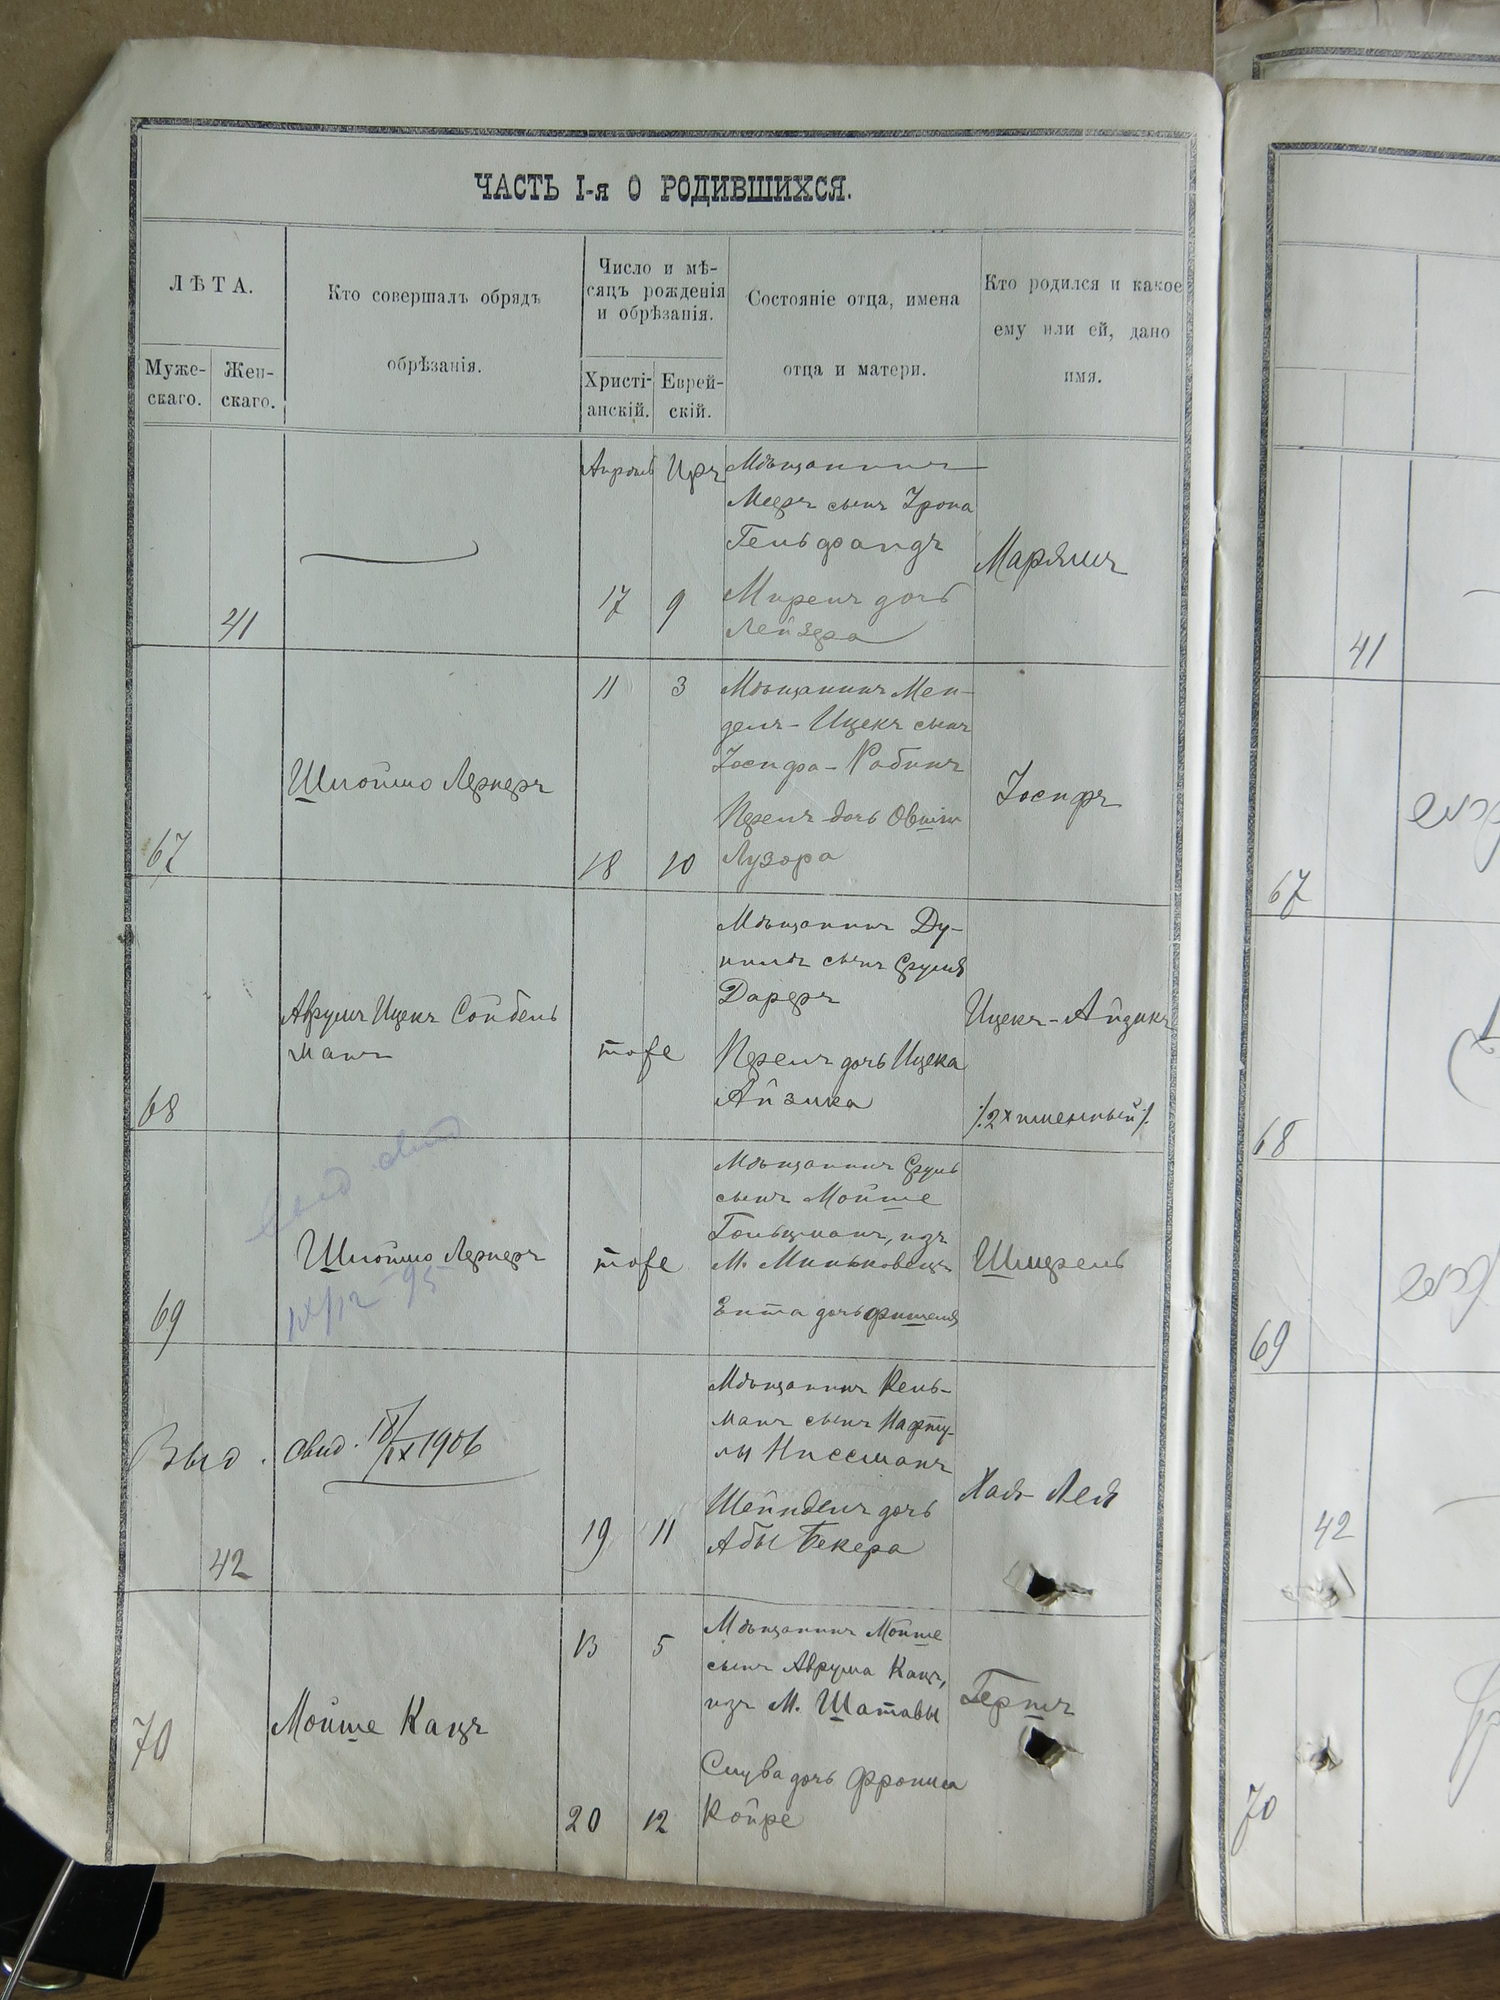 ЧАСТЬ I-я О РОДИВШИХСЯ.
ЛѢТА.
Муже-
скаго.
Жен-
скаго.
Кто совершалъ обрядъ
обрѣзанія.
Число и мѣ-
сяцъ рожденія
и обрѣзанія.
Христі-
анскій.
Еврей-
скій.
Состояніе отца, имена
отца и матери.
Кто родился и какое
ему или ей, дано
имя.
41
Апрѣль
Иръ
17
9
Мѣщанинъ
Мееръ сынъ Дрона
Гельфандъ
Миремъ дочь
Лейзера
Марямъ
67
Шлоймо Лернеръ
11
3
18
10
Мѣщанинъ Мен-
дель-Ицекъ сынъ
Іосифа-Рабинъ
Перелъ дочь Овшія
Лузора
Іосифъ
68
Аврумъ Ицекъ Сойбель
манъ
тоfе
Мѣщанинъ Ду-
сынъ Сруля
Дареръ
Перелъ дочь Ицека
Айзика
Ицекъ-Айзикъ
/:2хименный:/
69
Шлоймо Лернеръ
тоfе
Мѣщанинъ Сруль
сынъ Мойше
Гольцманъ, изъ
М. Миньковецъ
Ента дочь Фишеля
Шмерель
Выд. свид. 18/IX 1906
42
19
11
Мѣщанинъ Кель-
манъ сынъ Нафту-
лы Ниссманъ
Шейндель дочь
Абы Бекера
Хая-Лея
70
Мойше Кацъ
13
5
20
12
Мѣщанинъ Мойше
сынъ Аврума Кацъ,
изъ М. Шатавы
дочь Фроима
Койре
Гершъ
41
67
68
69
42
70